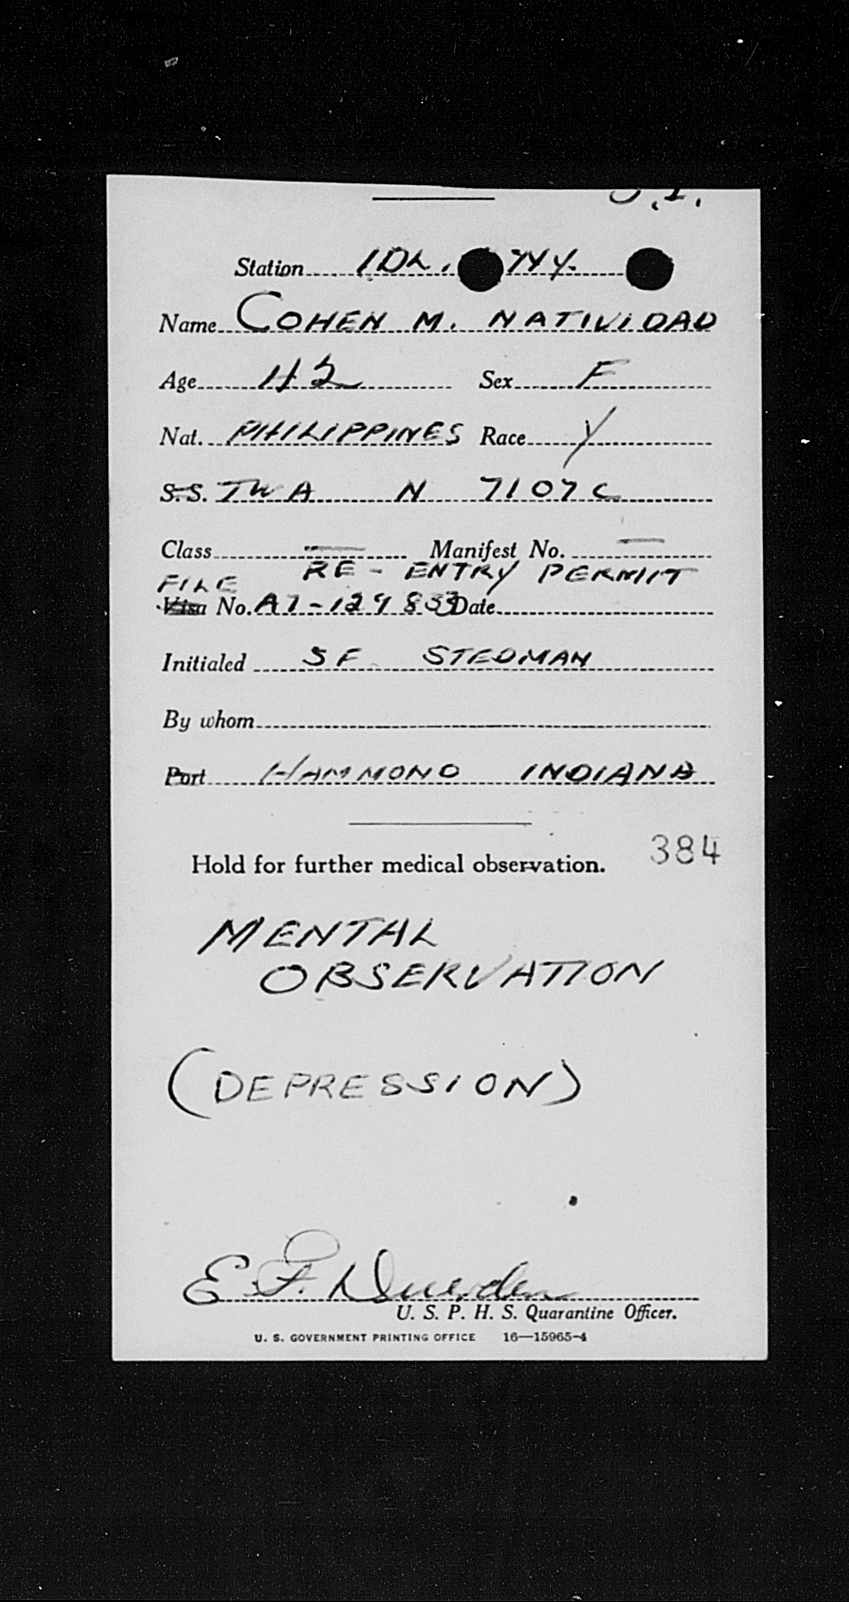 S.I.
Station IDL. NY.
Name COHEN M. NATIVIDAD
Age 42 Sex F
Nat. PHILIPPINES Race Y
S.S. TWA N 7107C
Class — Manifest No. —
FILE RE-ENTRY PERMIT
Visa No. A7-129 833 Date
Initialed SF STEDMAN
By whom
Port HAMMOND INDIANA
Hold for further medical observation. 384
MENTAL
OBSERVATION
(DEPRESSION)
E. F. Duerden
U. S. P. H. S. Quarantine Officer.
U. S. GOVERNMENT PRINTING OFFICE 16—15965-4